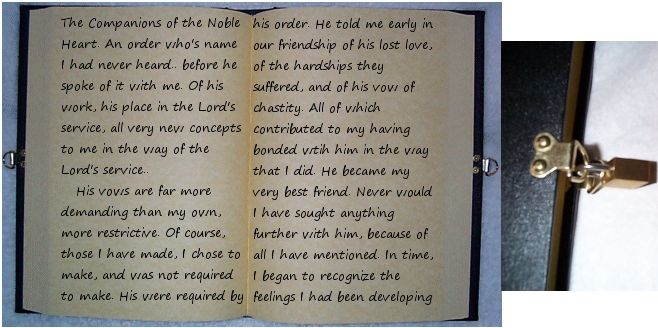 The Companions of the Noble
Heart. An order who's name
I had never heard.. before he
spoke of it with me. Of his
work, his place in the Lord's
service, all very new concepts
to me in the way of the
Lord's service..
His vows are far more
demanding than my own,
more restrictive. Of course,
those I have made, I chose to
make, and was not required
to make. His were required by
his order. He told me early in
our friendship of his lost love,
of the hardships they
suffered, and of his vow of
chastity. All of which
contributed to my having
bonded wtih him in the way
that I did. He became my
very best friend. Never would
I have sought anything
further with him, because of
all I have mentioned. In time,
I began to recognize the
feelings I had been developing